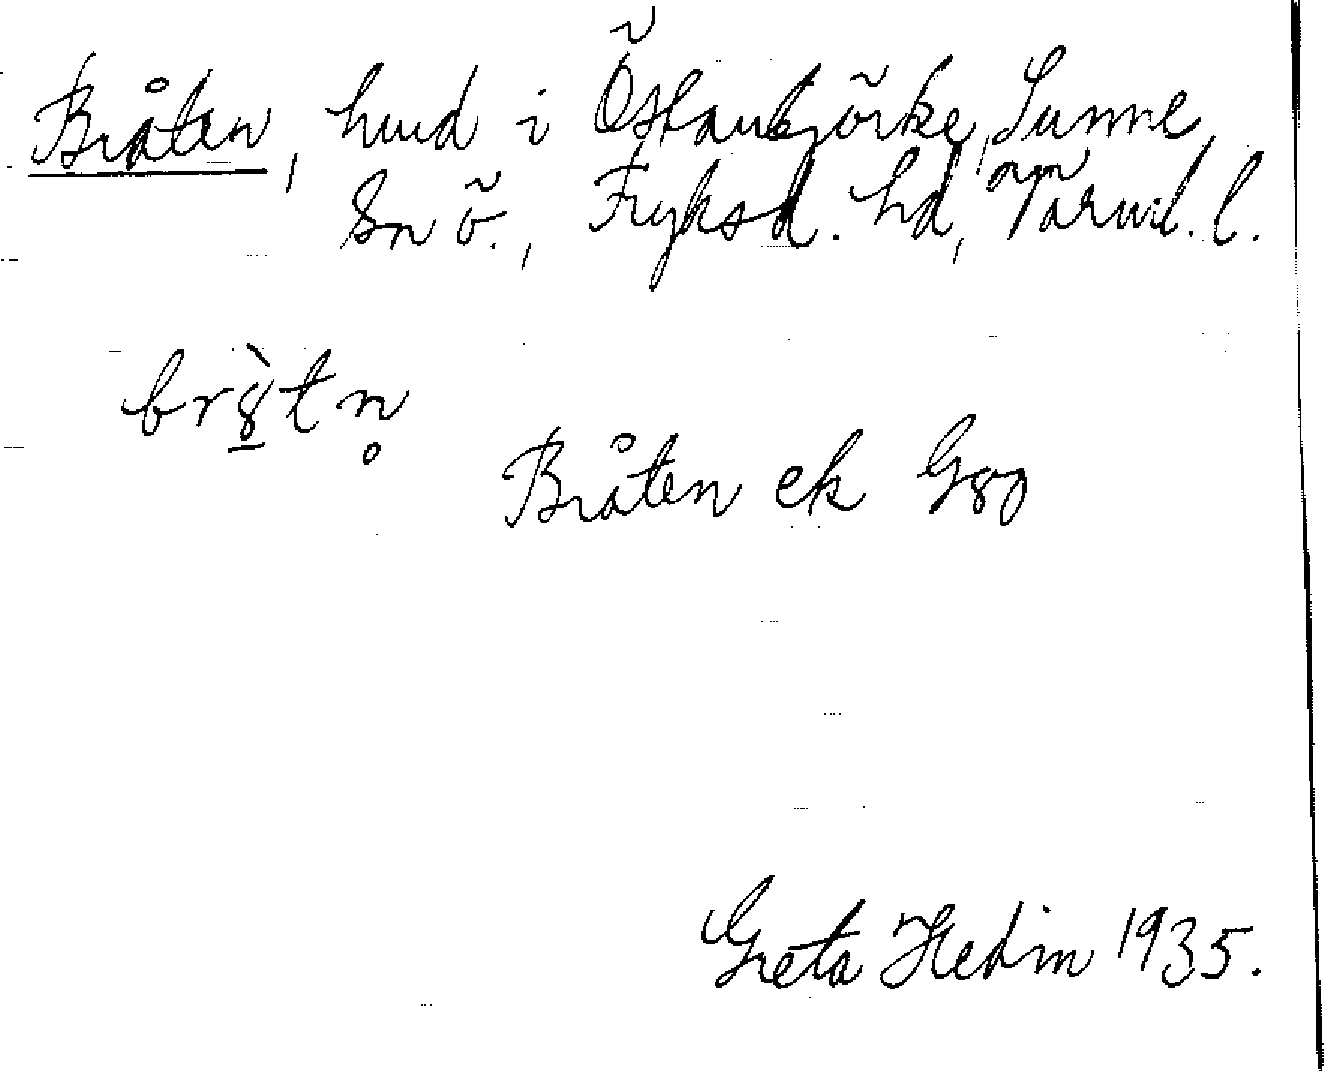 Bråten, hmd i Östanbjörke, Sunne
sn ö., Fryksd. hd, Värml. l.
br8̠̀tn̥
Bråten ek G80
Greta Hedin 1935.